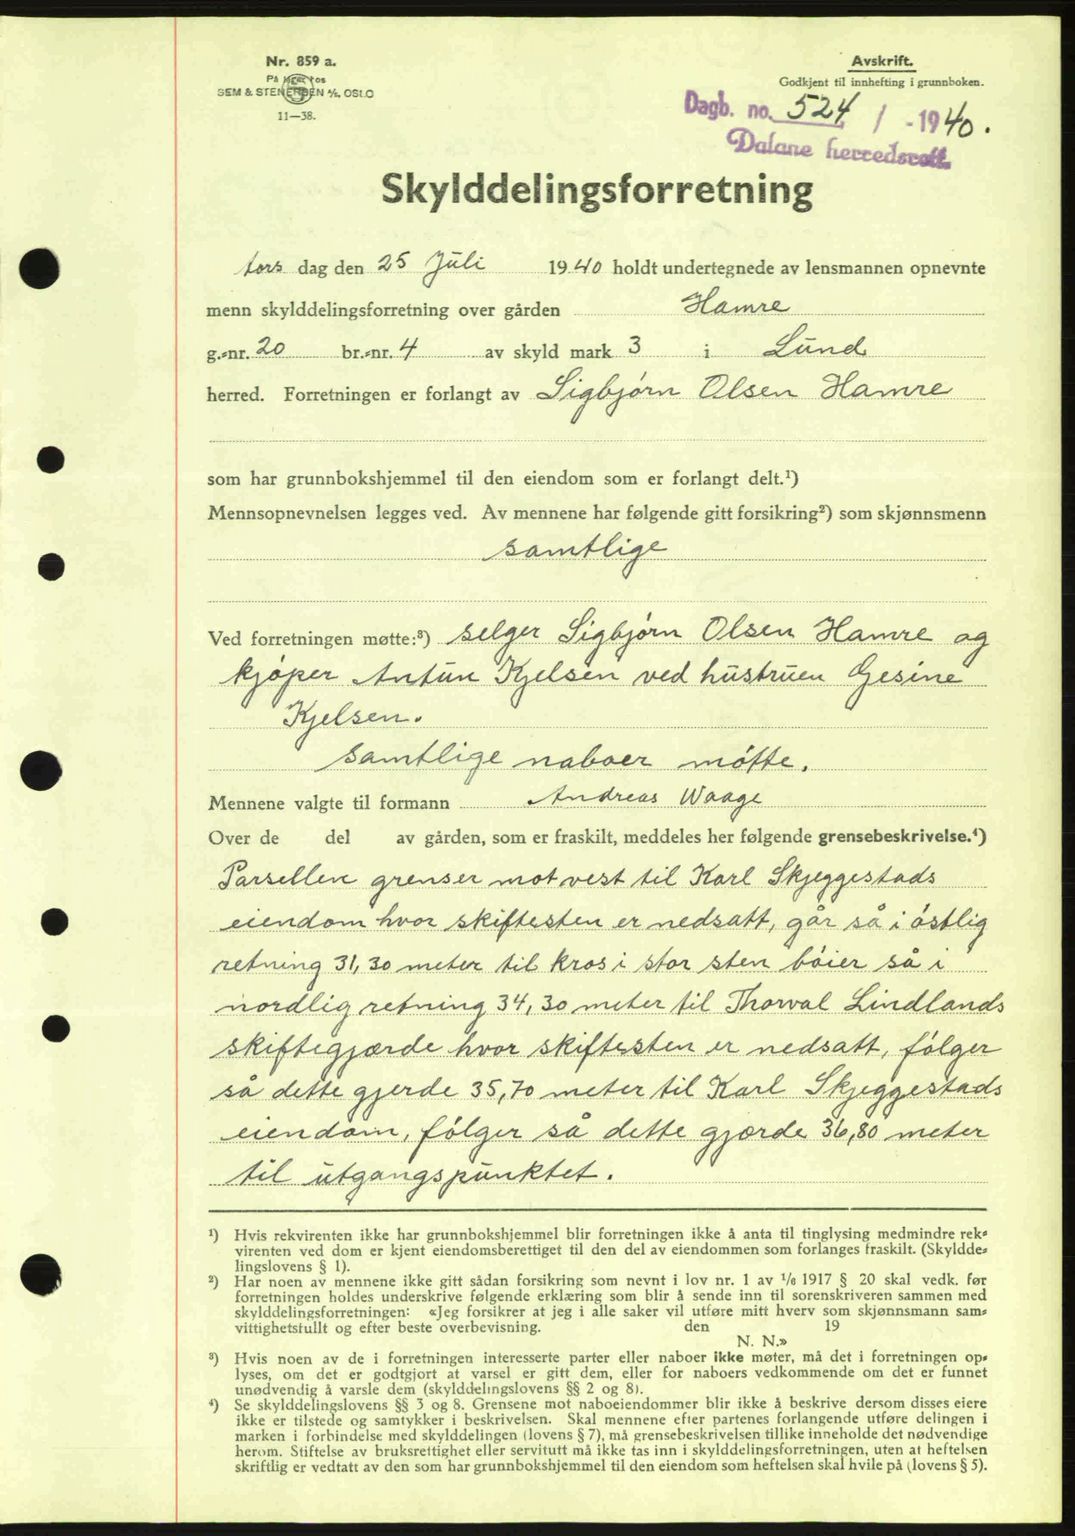 Nr. 859 a.
På lager hos
SEM & STENERSEN A/S, OSLO
11—38.
Avskrift.
Godkjent til innhefting i grunnboken.
Dagb. no. 524 / - 1940.
Dalane herredsrett
Skylddelingsforretning
tors dag den 25 Juli 1940 holdt undertegnede av lensmannen opnevnte
menn skylddelingsforretning over gården Hamre
g.-nr. 20 br.-nr. 4 av skyld mark 3 i Lund
herred. Forretningen er forlangt av Sigbjørn Olsen Hamre
som har grunnbokshjemmel til den eiendom som er forlangt delt.¹)
Mennsopnevnelsen legges ved. Av mennene har følgende gitt forsikring²) som skjønnsmenn
samtlige
Ved forretningen møtte:³) selger Sigbjørn Olsen Hamre og
kjøper Antun Kjelsen ved hustruen Gesine
Kjelsen.
samtlige naboer møtte.
Mennene valgte til formann Andreas Waage
Over de del av gården, som er fraskilt, meddeles her følgende grensebeskrivelse.⁴)
Parsellen grenser mot vest til Karl Skjeggestads
eiendom hvor skiftesten er nedsatt, går så i østlig
retning 31,30 meter til kros i stor sten bøier så i
nordlig retning 34,30 meter til Thorval Lindlands
skiftegjærde hvor skiftesten er nedsatt, følger
så dette gjerde 35,70 meter til Karl Skjeggestads
eiendom, følger så dette gjærde 36,80 meter
til utgangspunktet.
¹) Hvis rekvirenten ikke har grunnbokshjemmel blir forretningen ikke å anta til tinglysing medmindre rek-
virenten ved dom er kjent eiendomsberettiget til den del av eiendommen som forlanges fraskilt. (Skyldde-
lingslovens § 1).
²) Har noen av mennene ikke gitt sådan forsikring som nevnt i lov nr. 1 av 1/6 1917 § 20 skal vedk. før
forretningen holdes underskrive følgende erklæring som blir å sende inn til sorenskriveren sammen med
skylddelingsforretningen: «Jeg forsikrer at jeg i alle saker vil utføre mitt hverv som skjønnsmann sam-
vittighetsfullt og efter beste overbevisning. den 19
N. N.»
³) Hvis noen av de i forretningen interesserte parter eller naboer ikke møter, må det i forretningen op-
lyses, om det er godtgjort at varsel er gitt dem, eller for naboers vedkommende om det er funnet
unødvendig å varsle dem (skylddelingslovens §§ 2 og 8).
⁴) Se skylddelingslovens §§ 3 og 8. Grensene mot naboeiendommer blir ikke å beskrive dersom disses eiere
ikke er tilstede og samtykker i beskrivelsen. Skal mennene efter partenes forlangende utføre delingen i
marken i forbindelse med skylddelingen (lovens § 7), må grensebeskrivelsen tillike inneholde det nødvendige
herom. Stiftelse av bruksrettighet eller servitutt må ikke tas inn i skylddelingsforretningen, uten at heftelsen
skriftlig er vedtatt av den som har grunnbokshjemmel til den eiendom som heftelsen skal hvile på (lovens § 5).